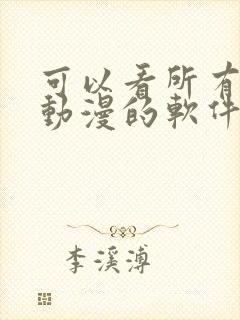 可以看所有
動漫的軟件
李溪溥